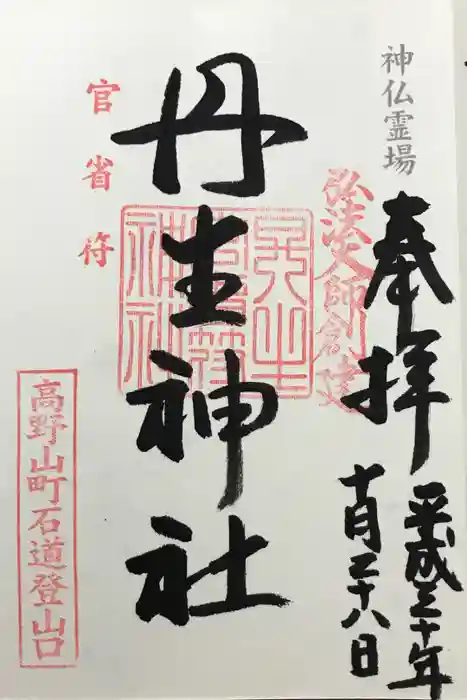 神仏霊場
奉拝
平成三十年
十月二十八日
弘法大師創建
丹生神社
官省符
高野山町石道登山口